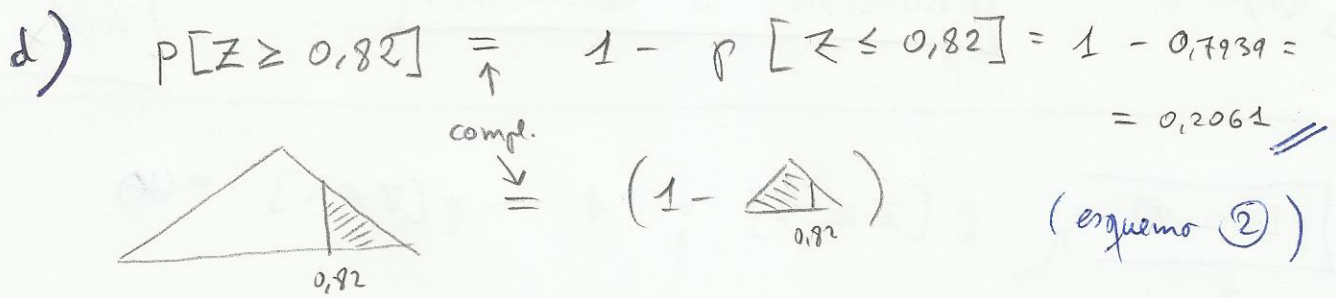 d) p[Z ≥ 0,82] = 1 - p[Z ≤ 0,82] = 1 - 0,7939 =
= 0,2061
compl.
= (1 - )
0,82
0,82
(esquema 2)